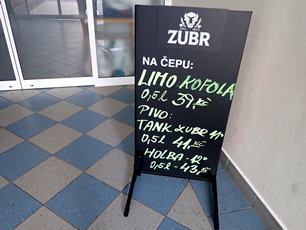 ZUBR
NA ČEPU:
LIMO KOFOLA
0,5l 39,-Kč
PIVO:
TANK ZUBR 11°
0,5l 41,-Kč
HOLBA -12°
0,5l - 43,-Kč